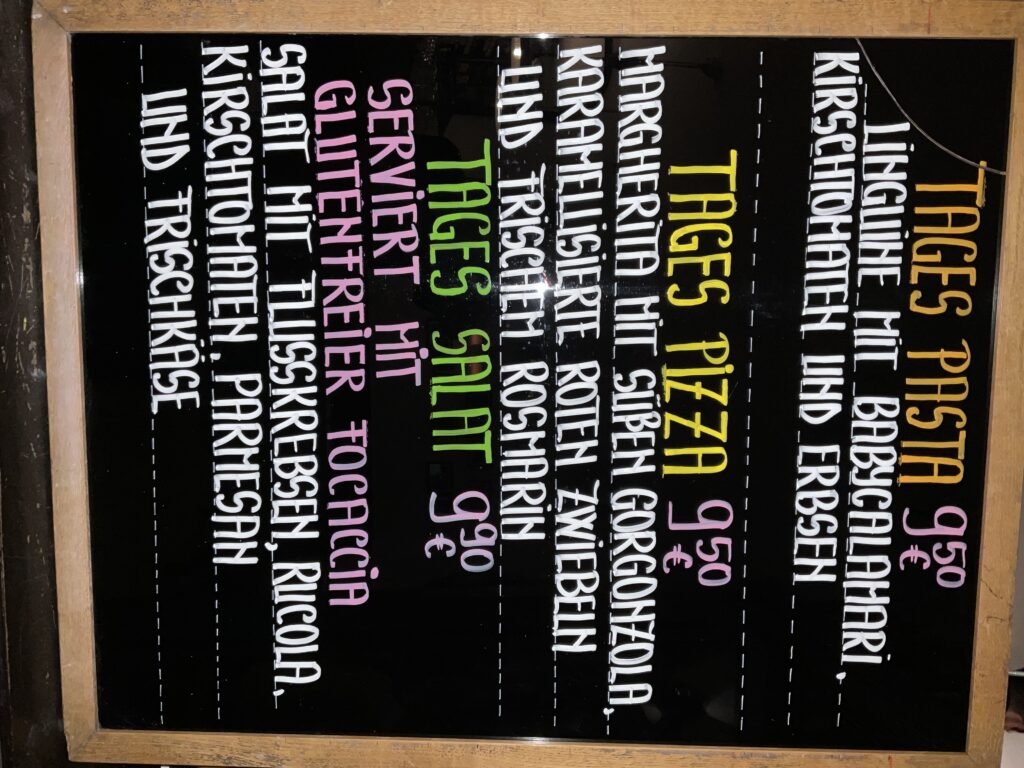 TAGES PASTA 9,50 €
LINGUINE MIT BABYCALAMARI,
KIRSCHTOMATEN UND ERBSEN
TAGES PIZZA 9,50 €
MARGHERITA MIT SÜßEN GORGONZOLA,
KARAMELLISIERTE ROTEN ZWIEBELN
UND FRISCHEM ROSMARIN
TAGES SALAT 9,90 €
SERVIERT MIT
GLUTENFREIER FOCACCIA
SALAT MIT FLUSSKREBSEN, RUCOLA,
KIRSCHTOMATEN, PARMESAN
UND FRISCHKÄSE